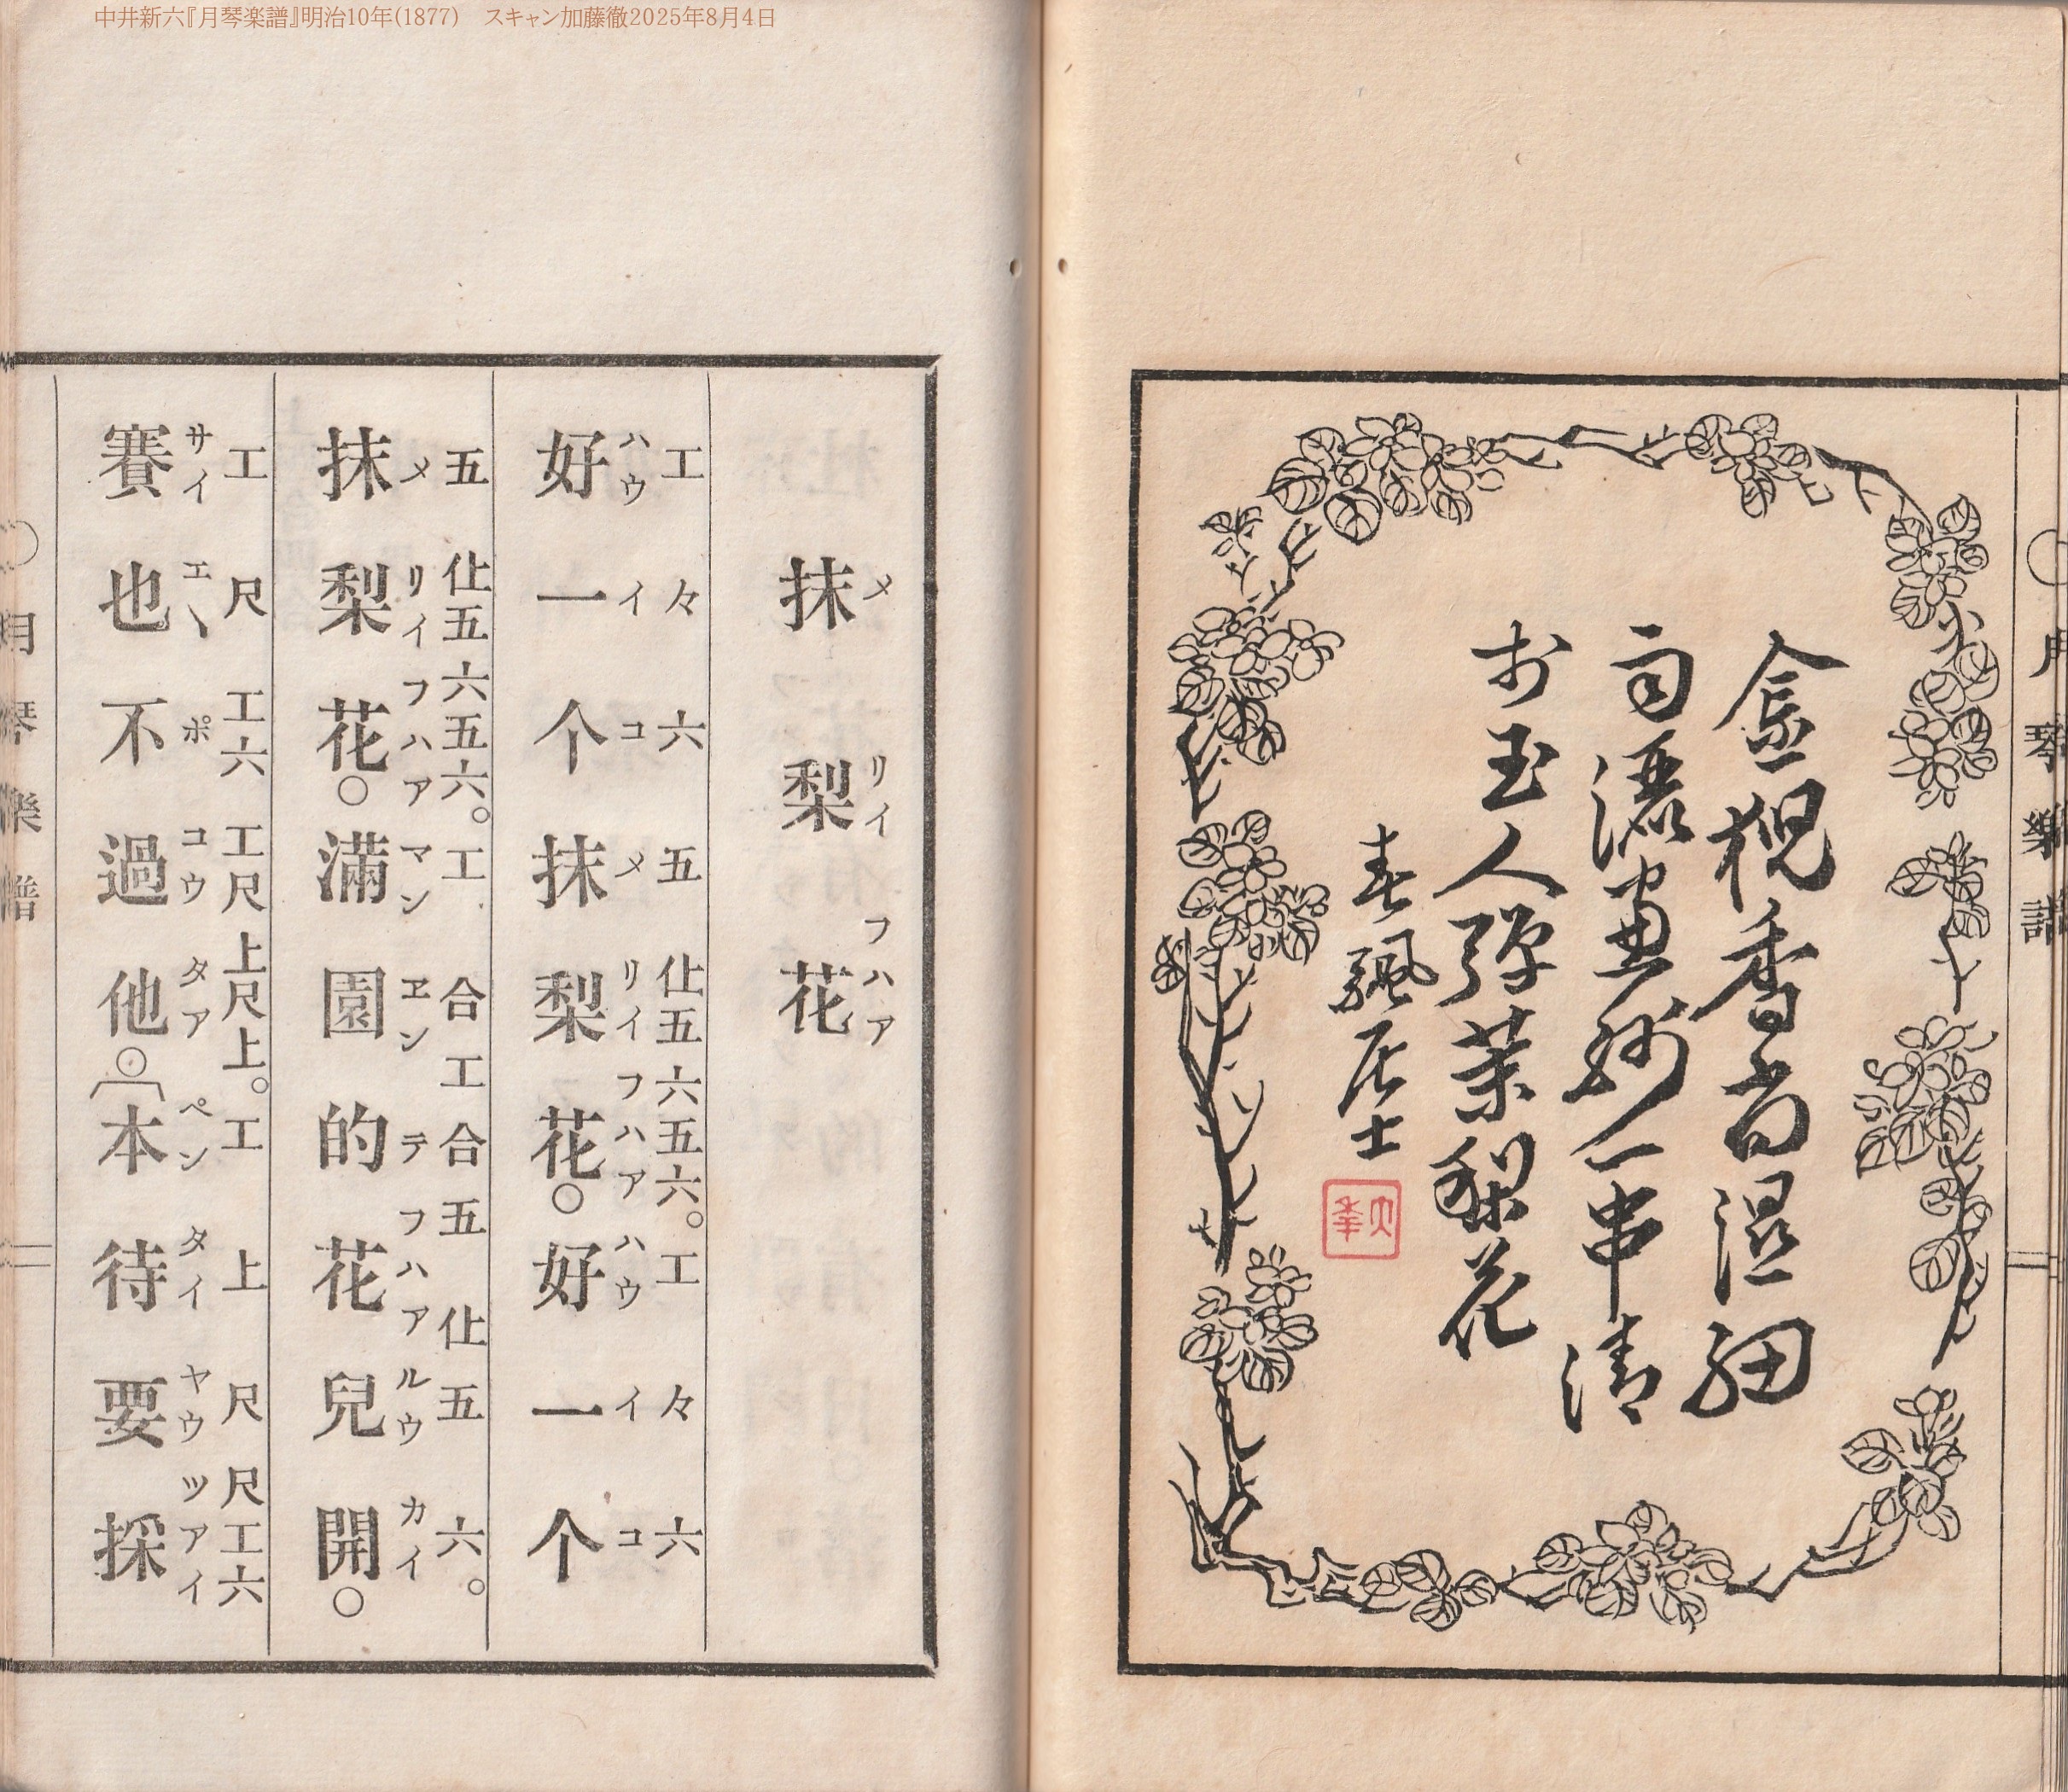 中井新六『月琴楽譜』明治10年(1877)　スキャン加藤徹2025年8月4日
○月琴樂譜
金猊香尚湿細
雨一串清
於玉人弾茉梨花
春颿居士
メ リイ フハア
抹梨花
工 々 六 五 仩五 六五六。 工 々 六
ハウ イ コ メ リイ フハア ハウ イ コ
好一个抹梨花○好一个
五 仩五 六五六。 工 合 工 合 五 仩 五 六。
メ リイ フハア マン ヱン テ フハア ルウ カイ
抹梨花○滿園的花兒開○
工 尺 工六 工尺 上尺上。 工 上 尺 尺工六
サイ エヽ ポ コウ タア ペン タイ ヤウ ツアイ
賽也不過他○︹本待要採
○月琴樂譜